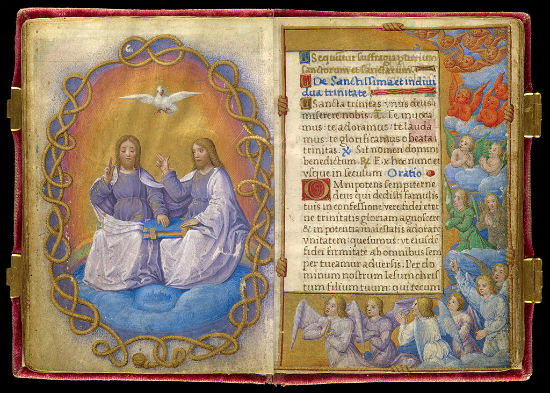 Sequuntur suffragia plurium
sanctorum et sanctarum.
De Sanctissima et indivi
dua trinitate
Sancta trinitas vnus deus
miserere nobis. Te inuoca
mus: te adoramus: te lauda
mus: te glorificamus o beata
trinitas. Sit nomen domini
benedictum. Ex hoc nunc et
vsque in seculum Oratio
Omnipotens sempiterne
deus qui dedisti famulis
tuis in confessione verę fidei eter
nę trinitatis gloriam agnoscere
& in potentia maiestatis adorare
vnitatem: quesumus: vt eiusdē
fidei firmitate ab omnibus sem
per tueamur aduersis. Per do
minum nostrum Iesum chris
tum filium tuum: qui tecum